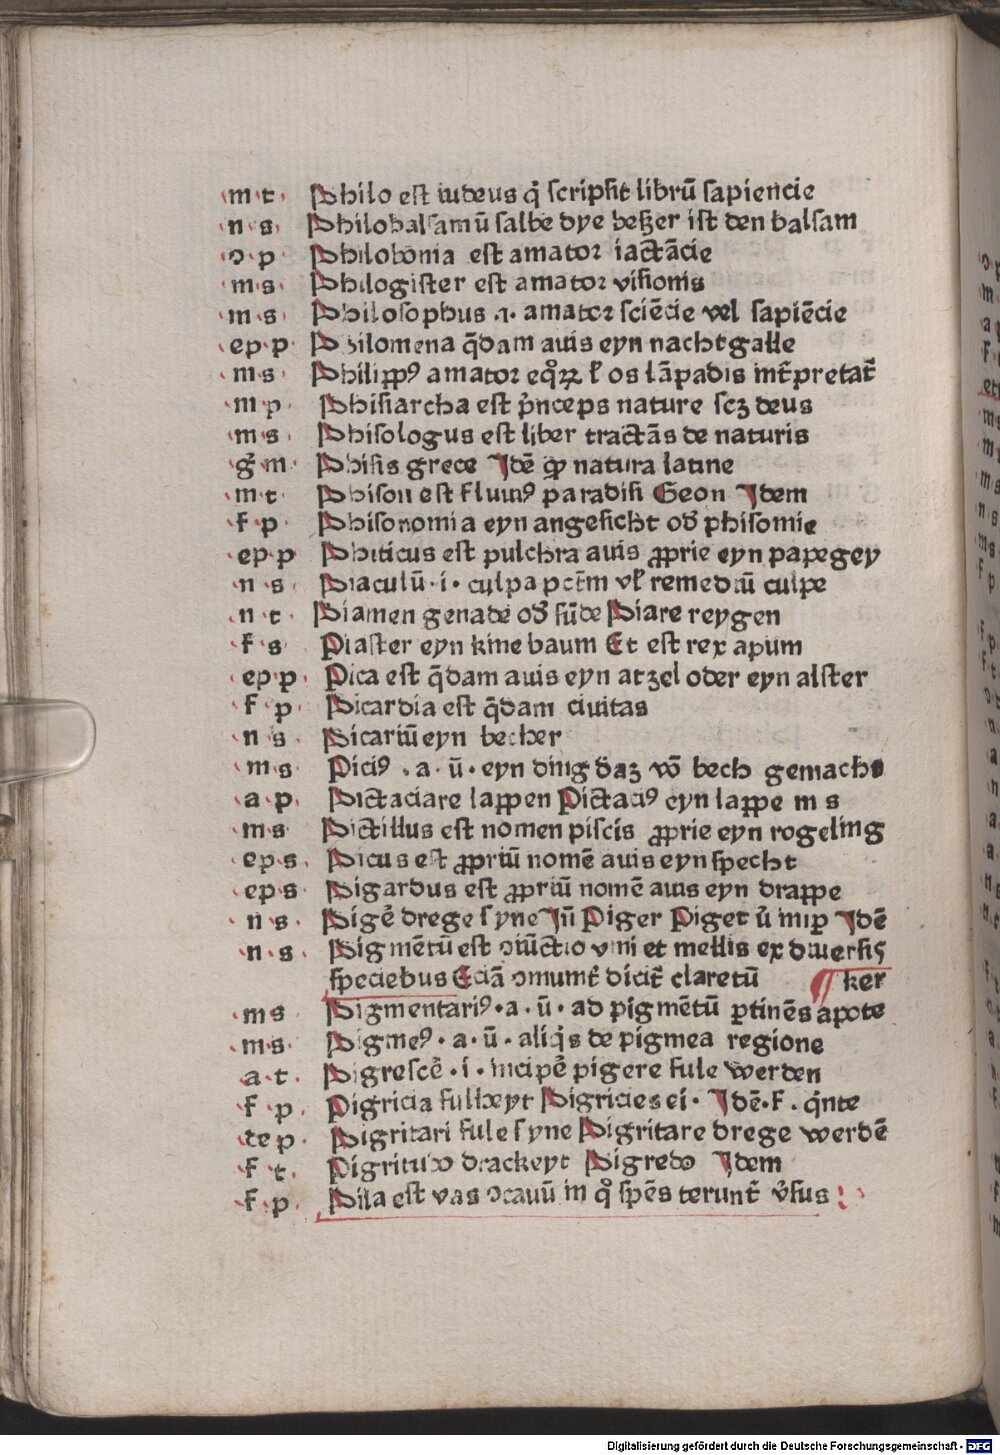 m t Philo est iudeus qͥ scripsit librū sapiencie
n s Philobalsamū salbe dye beßer ist den balsam
ɔ p Philobonia est amator iactācie
m s Philogister est amator visionis
m s Philosophus .i. amator sciēcie vel sapiēcie
ep p Philomena q̄dam auis eyn nachtgalle
m s Philippꝰ amator eqͦꝝ ł os lāpadis int̄pretat̄
m p Phisiarcha est p̄nceps nature scꝫ deus
m s Phisologus est liber tractās de naturis
ḡ m Phisis grece Jdē qꝫ natura latine
m t Phison est fluuiꝰ paradisi Geon Jdem
f p Phisonomia eyn angesicht od̄ phisomie
ep p Phiticus est pulchra auis ꝓprie eyn papegey
n s Piaculū .i. culpa pctm̄ vł remediū culpe
n t Piamen genade od̄ sūde Piare reygen
f s Piaster eyn kine baum Et est rex apum
ep p Pica est q̄dam auis eyn atzel oder eyn alster
f p Picardia est q̄dam ciuitas
n s Picariū eyn becher
m s Piciꝰ .a.ū. eyn ding d̄az vō bech gemachs
a p Pictaciare lappen Pictaciꝰ eyn lappe m s
m s Pictillus est nomen piscis ꝓprie eyn rogeling
ep s Picus est ꝓpriū nomē auis eyn specht
ep s Pigardus est ꝓpriū nomē auis eyn drappe
n s Pigē drege syne Jn̄ Piger Piget v̄ mꝑ Jdē
n s Pigmētū est ɔiūctio vini et mellis ex diuersis
speciebus Eciā ɔmunit̄ dicit̄ claretū ¶ ker
m s Pigmentariꝰ .a.ū. ad pigmētū ꝑtinēs apote
m s Pigmeꝰ .a.ū. aliqͥs de pigmea regione
a t Pigrescē .i. incipē pigere fule werden
f p Pigricia fulheyt Pigricies ei. Jdē. f. qͥnte
de p Pigritari fule syne Pigritare drege werdē
f t Pigritudo drackeyt Pigredo Jdem
f p Pila est vas ɔcauū in qͦ spēs terunt̄ v̄sus
Digitalisierung gefördert durch die Deutsche Forschungsgemeinschaft - DFG